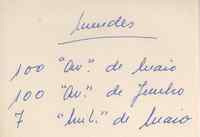 100 "Av". de Maio
100 "Av". de Junho
7 de Maio